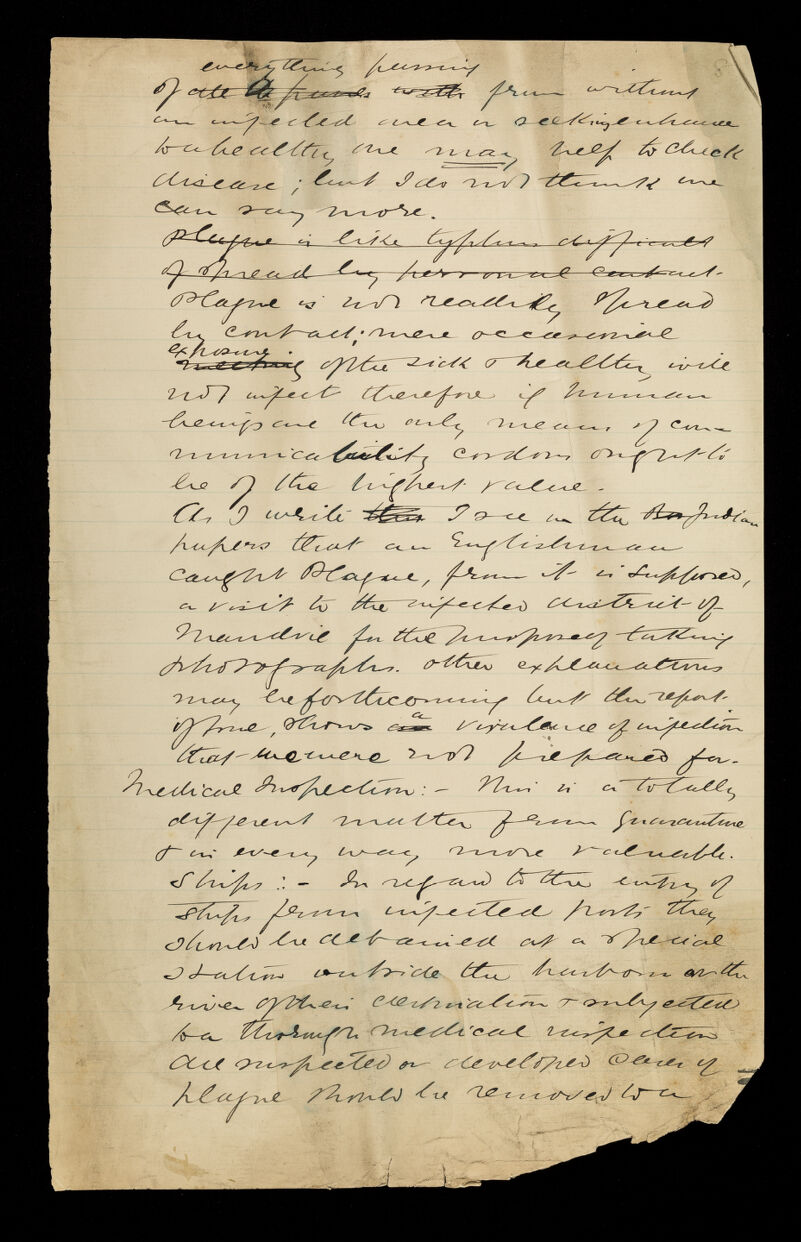 everything passing
of all from without
an infected area or seeking entrance
to a healthy one may help to check
disease; but I do not think one
can say more.
Plague is like typhus difficult
of spread by personal contact.
Plague is not readily spread
by contact; mere occasional
exposure
meeting of the sick & healthy will
not infect therefore if human
beings are the only means of com-
municability cordons ought to
be of the highest value.
As I write this I see in the Indian
papers that an Englishman
caught Plague, from it is supposed,
a visit to the infected district of
Mandvie for the purpose of taking
photographs. Other explanations
may be forthcoming but the report
if true, shows a virulence of infection
that we were not prepared for.
Medical Inspection:- This is a totally
different matter from Quarantine
& in every way more valuable.
Ships:- In regard to the entry of
ships from infected ports they
should be detained at a special
station outside the harbour or the
river of their destination & subjected
to a thorough medical inspection
All suspected or developed cases of
plague should be removed to a